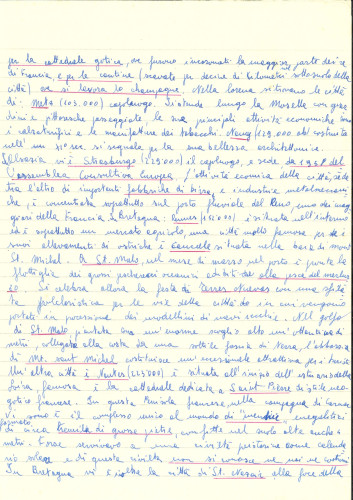 per la cattedrale gotica, ove furono incoronati la maggior parte dei re
di Francia, e per le cantine (scavate per decine di kilometri sottosuolo della
città) ove si lavora lo champagne. Nella lorena si trovano le città
di: Metz (103.000) capoluogo. Si stende lungo la Mosella con giar
dini e pittoresche passeggiate, le sue principali attività economiche sono
i calzaturifici e le manifatture dei tabacchi. Nancy (129.000 ab) costruita
nell' un si segnala per la sua bellezza architettonica.
Alsazia vi è Strasburgo (229.000) il capoluogo, e sede da 1949 del
l'assemblea Consultiva Europea. l'attività economica della città, si de
tra l'altro di importanti fabbriche di birra, e industrie metalmeccani
che, è concentrata soprattutto sul porto fluviale del Reno, uno dei mag
giori della Francia. Bretagna: Rennes è situata nell'interno
ed è soprattutto un mercato agricolo, una città molto famosa per i
suoi allevamenti di ostriche è Cancale situata nella baia di mont
St. Michel. A St. Malo, nel mese di marzo nel porto è pronta la
flottiglia dei grossi pescherecci oceanici adibiti alla pesca del merluz
zo. Si celebra allora la festa di Terres Nuevas con una sfila
ta folcloristica per le vie della città dove in cui vengono
portati in processione dei modellini di navi vecchie. Nel golfo
di St. Malo, piantata su un'enorme scoglio alto un'ottantina di
metri collegato alla costa da una sottile fascia di terra, l'abbazia
di Mt. Saint Michel costituisce un'eccezionale attrattiva per i turisti
Un'altra città è Nantes (263.000) è situata all'inizio dell'estuario della
Loira, famosa è la cattedrale dedicata a Saint Pierre in stile neo
gotico francese. In questa Penisola francese, nella campagna di Carnac
vi sono il complesso unico al mondo di "menhir" e megalitici
di circa tremila di grosse pietre, conficcate nel suolo alte anche
metri. Forse servivano a una civiltà preistorica come calenda
rio solare e di questa civiltà non si conosce né usi né costumi
In Bretagna vi è inoltre la città di St. Nazaire alla foce della